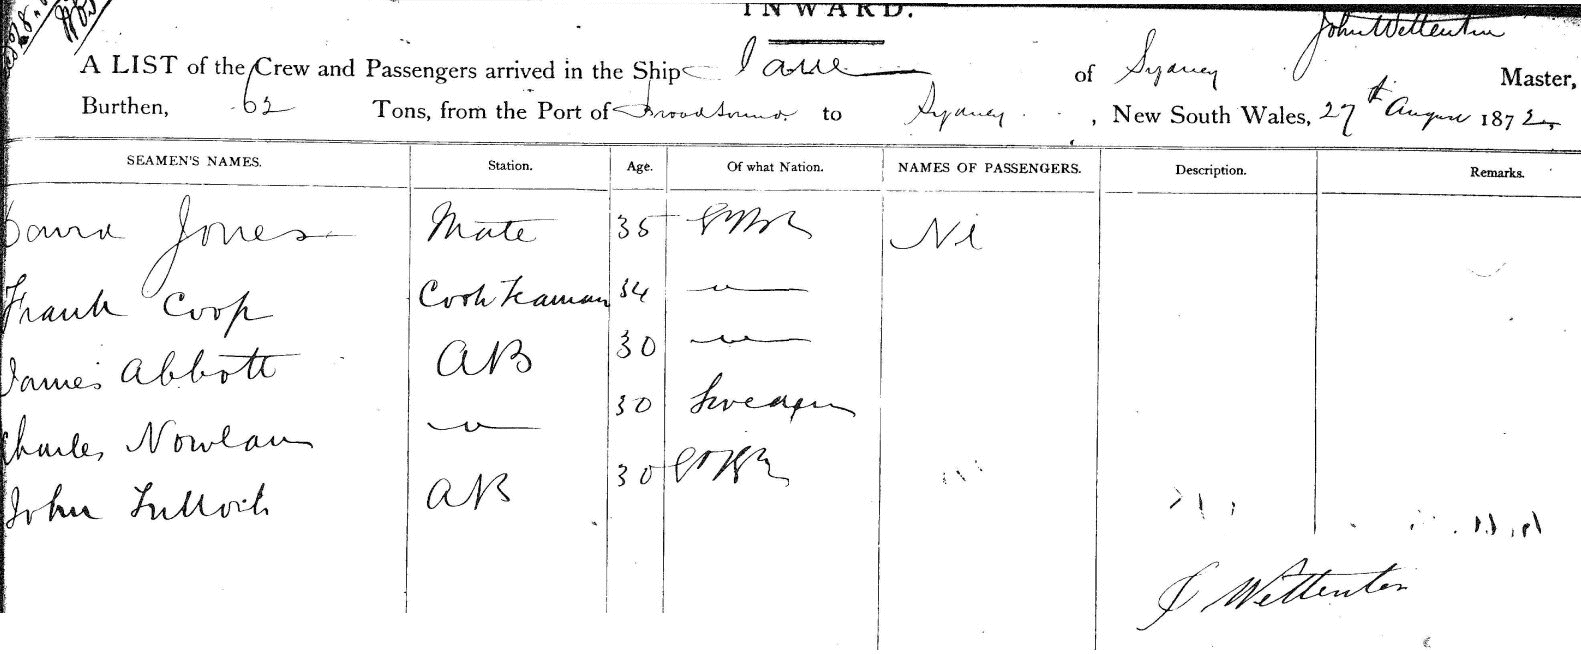 INWARD.
John Wettenton
A LIST of the Crew and Passengers arrived in the Ship of Sydney Master,
Burthen, 62 Tons, from the Port of Broadsound to Sydney, New South Wales, 27th August 1872
SEAMEN'S NAMES. Station. Age. Of what Nation. NAMES OF PASSENGERS. Description. Remarks.
David Jones Mate 35 Nil
Frank Coop Cook & Seaman 34 — " —
James Abbott AB 30 — " —
Charles Nowlan — " — 30 Sweden
John Tulloch AB 30
J Wettenton